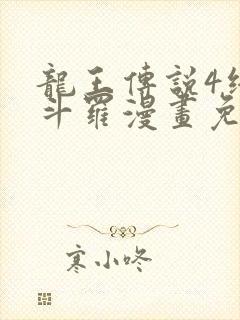 龍王傳說4
斗羅漫畫免
寒小咚